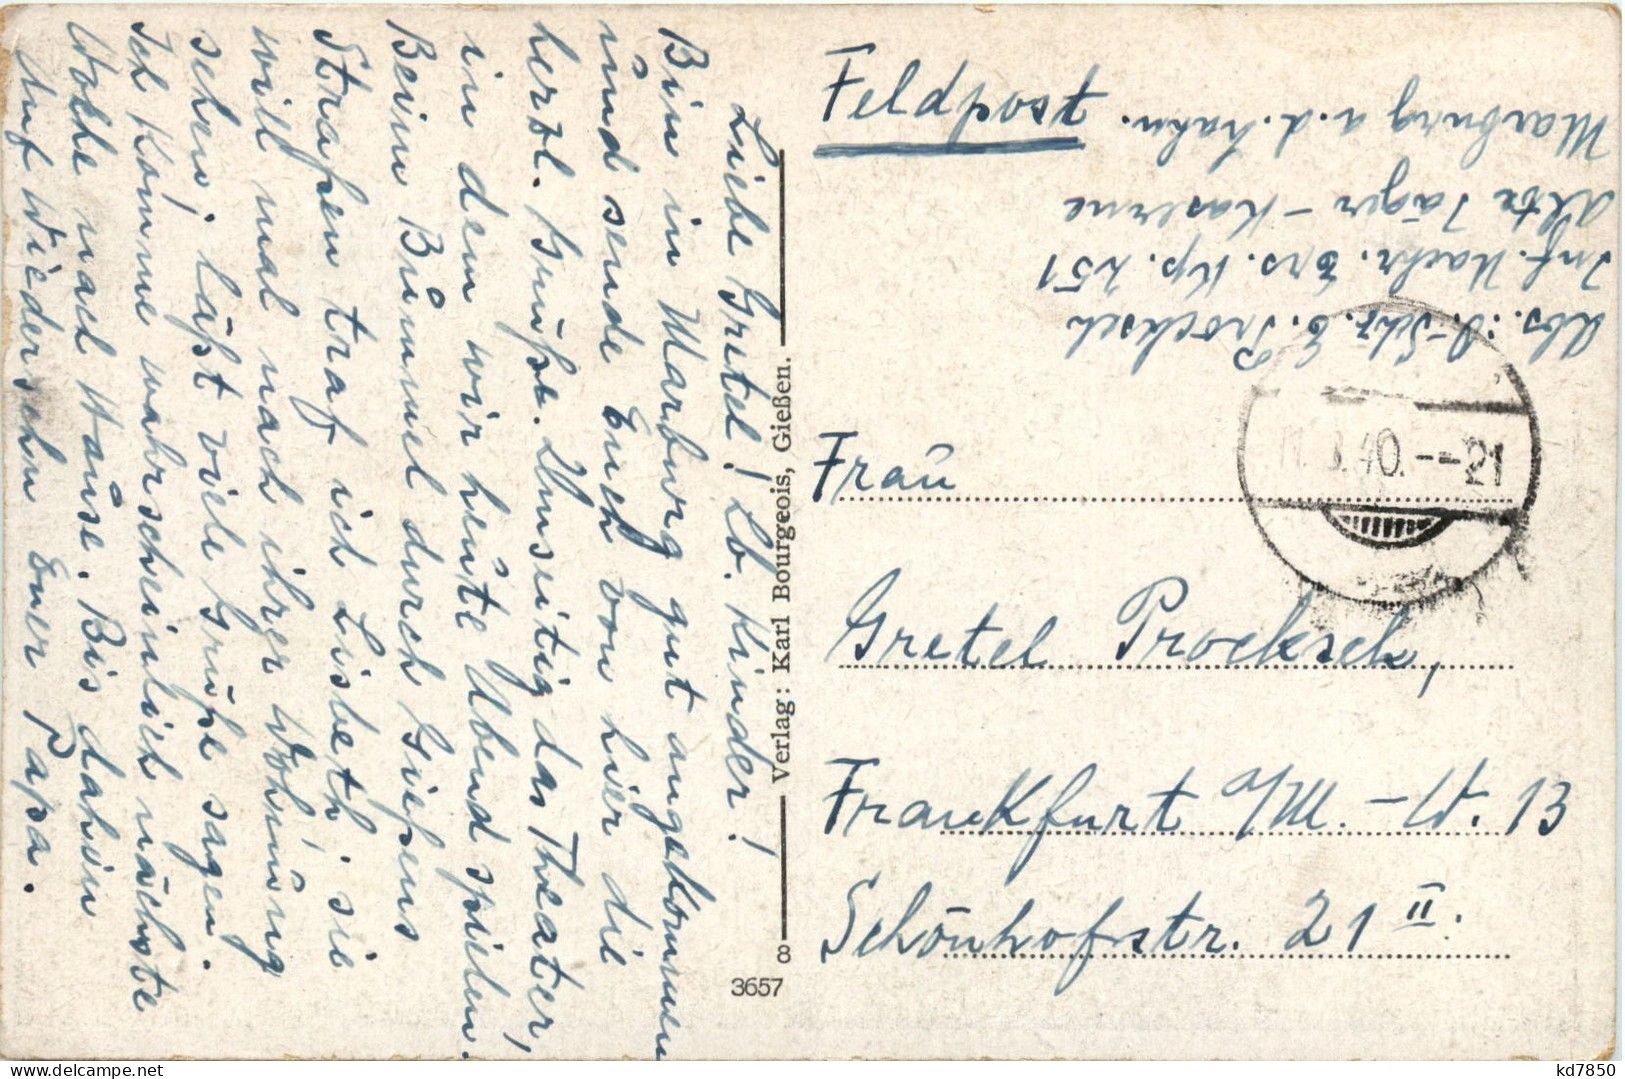 Liebe Gretel! Lb. Kinder!
Bin in Marburg gut angekommen
und sende Euch von hier die
herzl. Grüße. Umseitig das Theater,
in dem wir heute Abend spielen.
Beim Bummel durch Gießens
Straßen traf ich Lisbeth, sie
will mal nach ihrer Wohnung
sehen, läßt viele Grüße sagen.
Ich komme wahrscheinlich nächste
Woche nach Hause. Bis dahin
Auf Wiedersehn Euer Papa.
Verlag: Karl Bourgeois, Gießen.
8
3657
Feldpost
Abs.: O.-Schz. E. Procksch
Inf. Nachr. Ers. Kp. 251
Alte Jäger-Kaserne
Marburg a.d. Lahn.
40.--21
Frau
Gretel Procksch,
Frankfurt a/M.-W. 13
Schönhofstr. 21 II.
kd7850